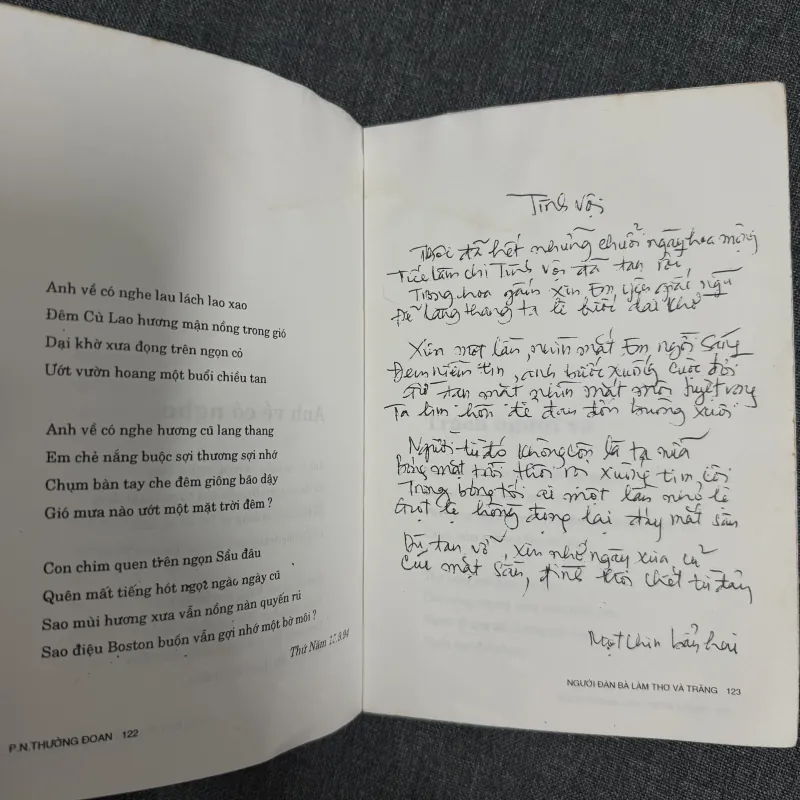 Anh về có nghe lau lách lao xao
Đêm Cù Lao hương mận nồng trong gió
Dại khờ xưa đọng trên ngọn cỏ
Ướt vườn hoang một buổi chiều tan
Anh về có nghe hương cũ lang thang
Em chẻ nắng buộc sợi thương sợi nhớ
Chụm bàn tay che đêm giông bão dậy
Gió mưa nào ướt một mặt trời đêm ?
Con chim quen trên ngọn Sầu đâu
Quên mất tiếng hót ngọt ngào ngày cũ
Sao mùi hương xưa vẫn nồng nàn quyến rũ
Sao điệu Boston buồn vẫn gợi nhớ một bờ môi ?
Thứ Năm
P.N.THƯỜNG ĐOAN 122
Tình vội
Thôi đã hết những chuỗi ngày hoa mộng
Tiếc làm chi Tình vội đã tan rồi
Trong hoa xin Em yên giấc ngủ
Để lang thang ta lê bước dại khờ
Xin một lần, nhìn mắt Em ngời sáng
Đem niềm tin, anh bước xuống cuộc đời
mắt nhìn mắt môi tuyệt vọng
Ta tìm hồn đau đớn buông xuôi
Người từ đó không còn là ta nữa
Bóng mặt trời thôi rơi xuống tim côi
Trong bóng tối ai một lần nhỏ lệ
Giọt lệ hồng đọng lại đáy mắt sâu
Dù tan vỡ, xin nhớ ngày xưa cũ
mắt sâu, tình thôi chết từ đây
Một chín bảy hai
NGƯỜI ĐÀN BÀ LÀM THƠ VÀ TRĂNG 123